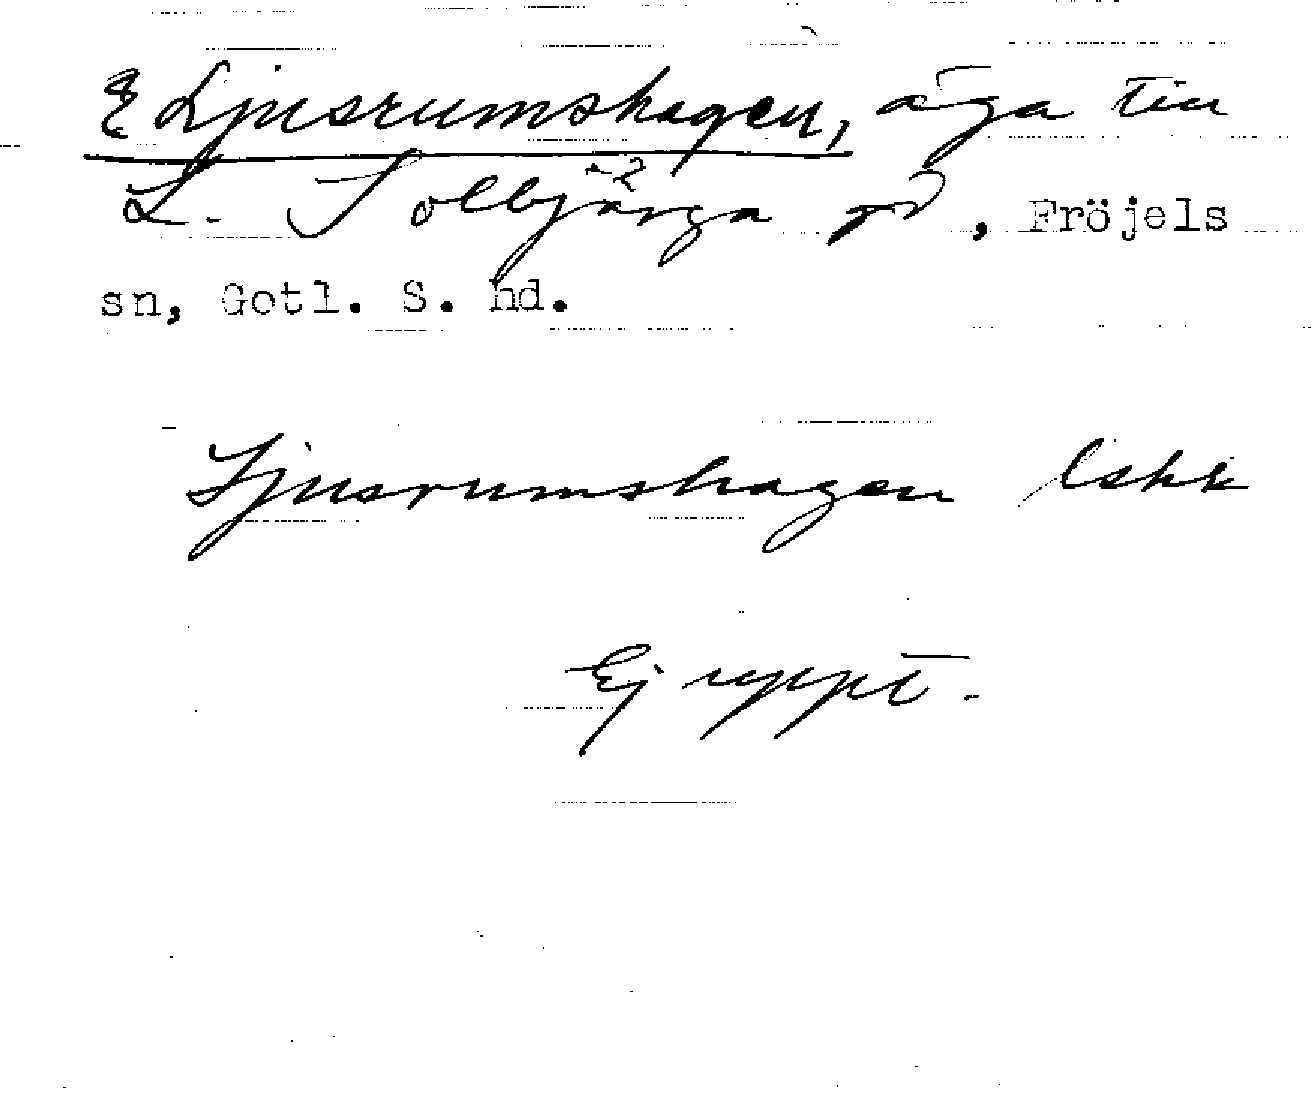 E Ljusrumshagen, äga till
L. Tolbjärga 2 gd, Fröjels
sn, Gotl. S. hd.
Ljusrumshagen lskk
Ej uppt.